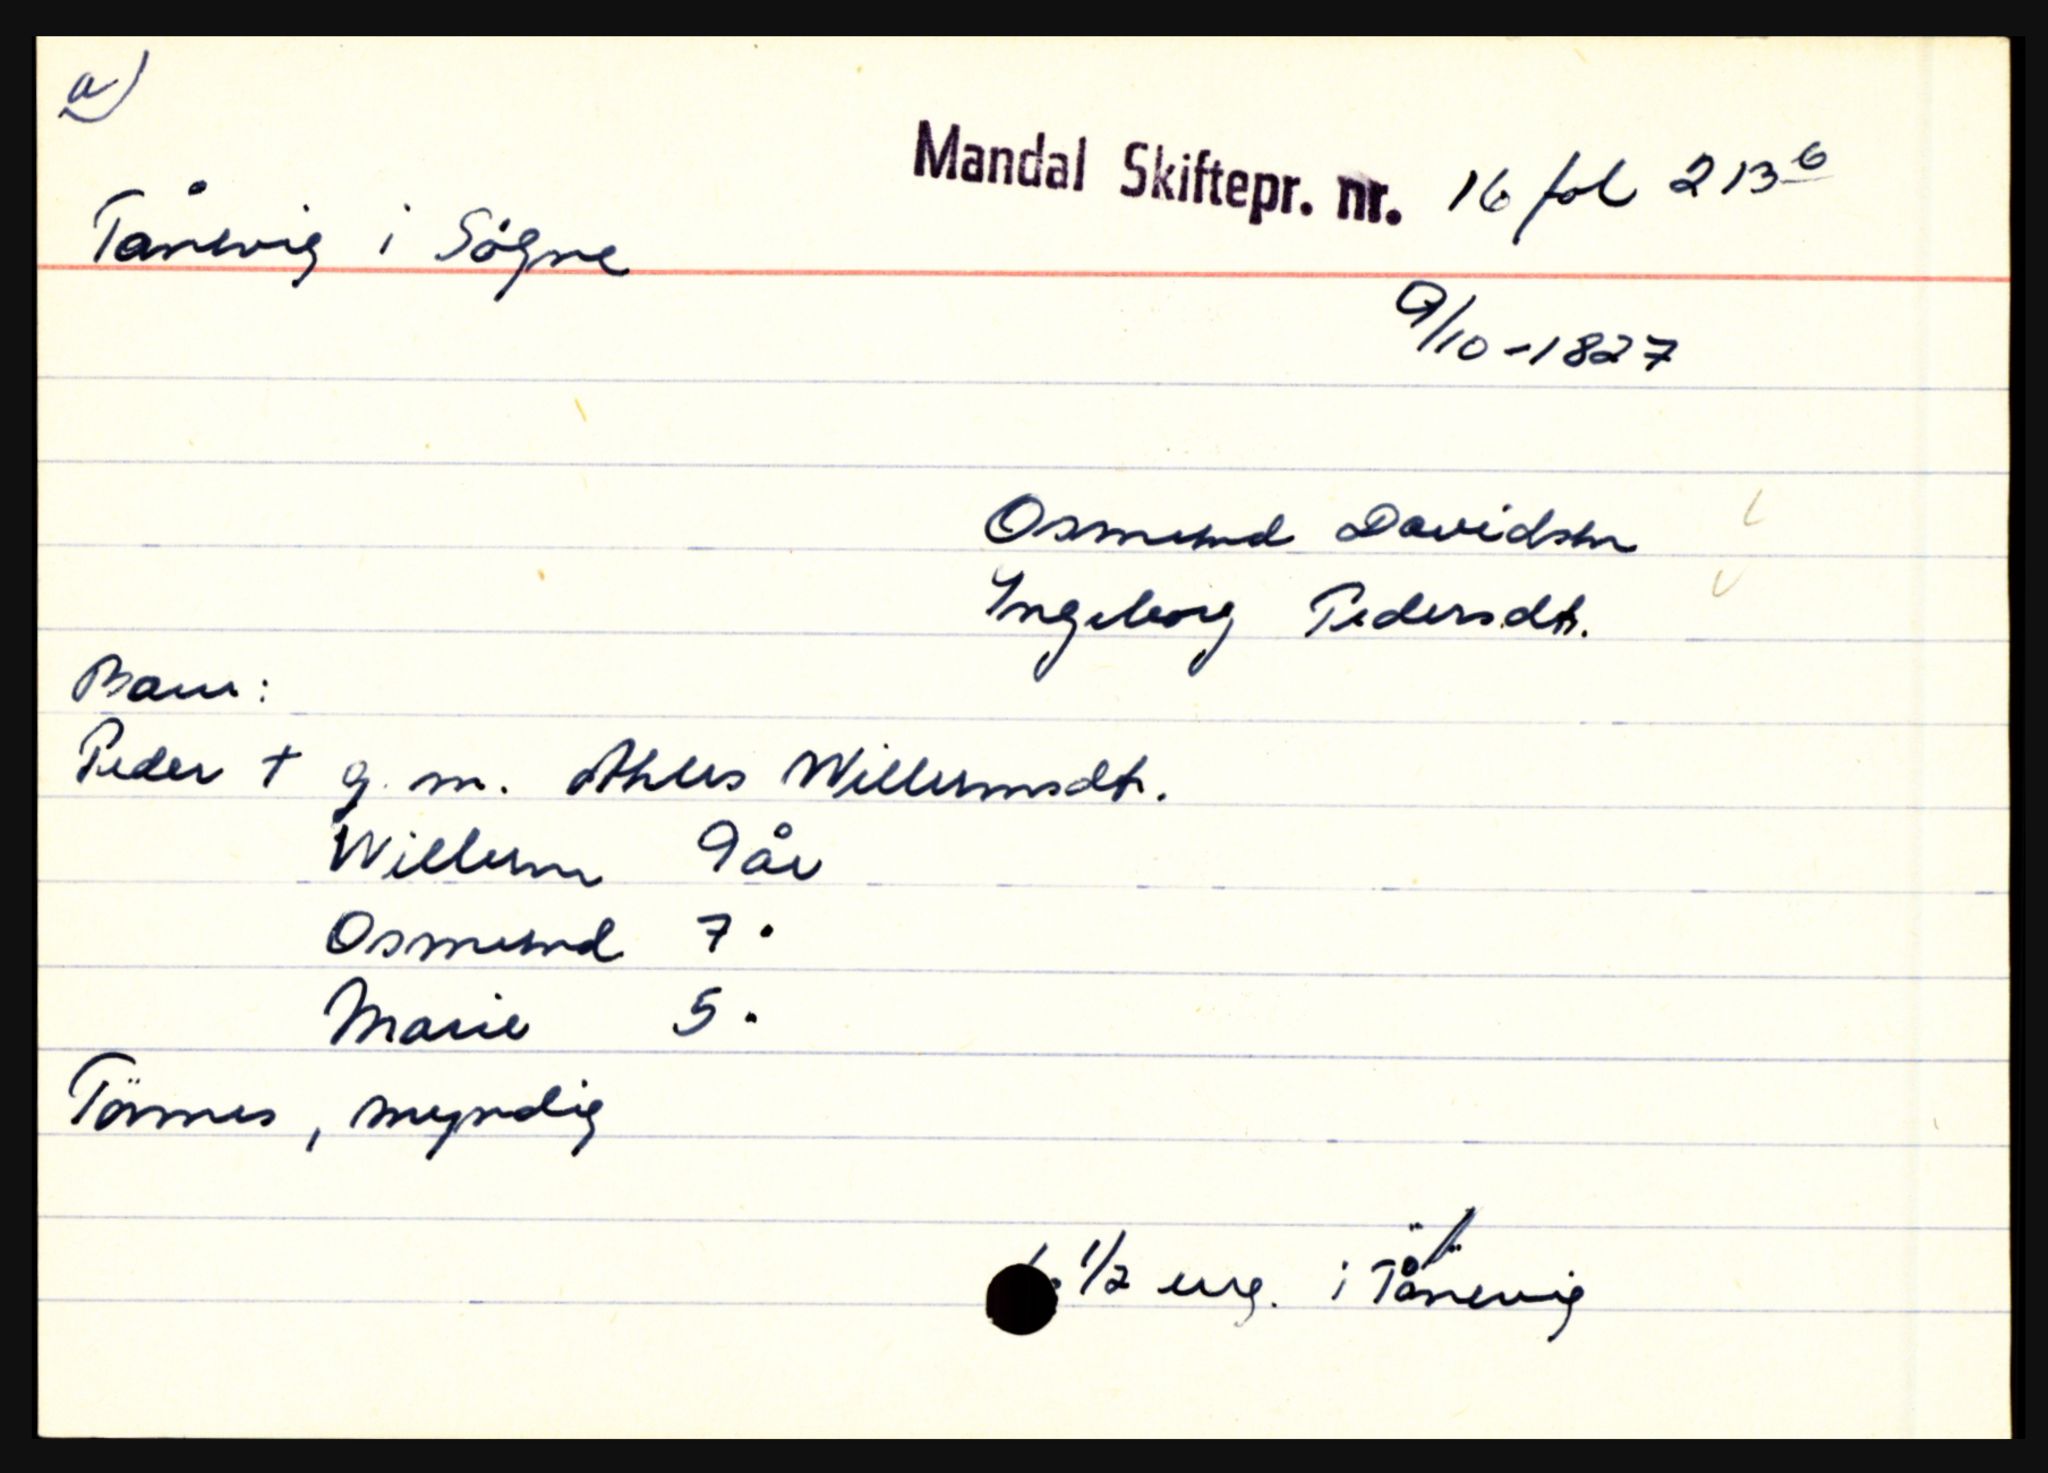 a)
Mandal Skiftepr. nr. 16 fol 213 b
Tånevig i Søgne
9/10-1827
Osmund Davidsen
Ingeborg Pedersdtr.
Barn:
Peder + g. m. Ahles Willumsdtr.
Willum 9 år
Osmund 7 "
Marie 5 "
Tönnes, myndig
1/2 eng. i Tånevig